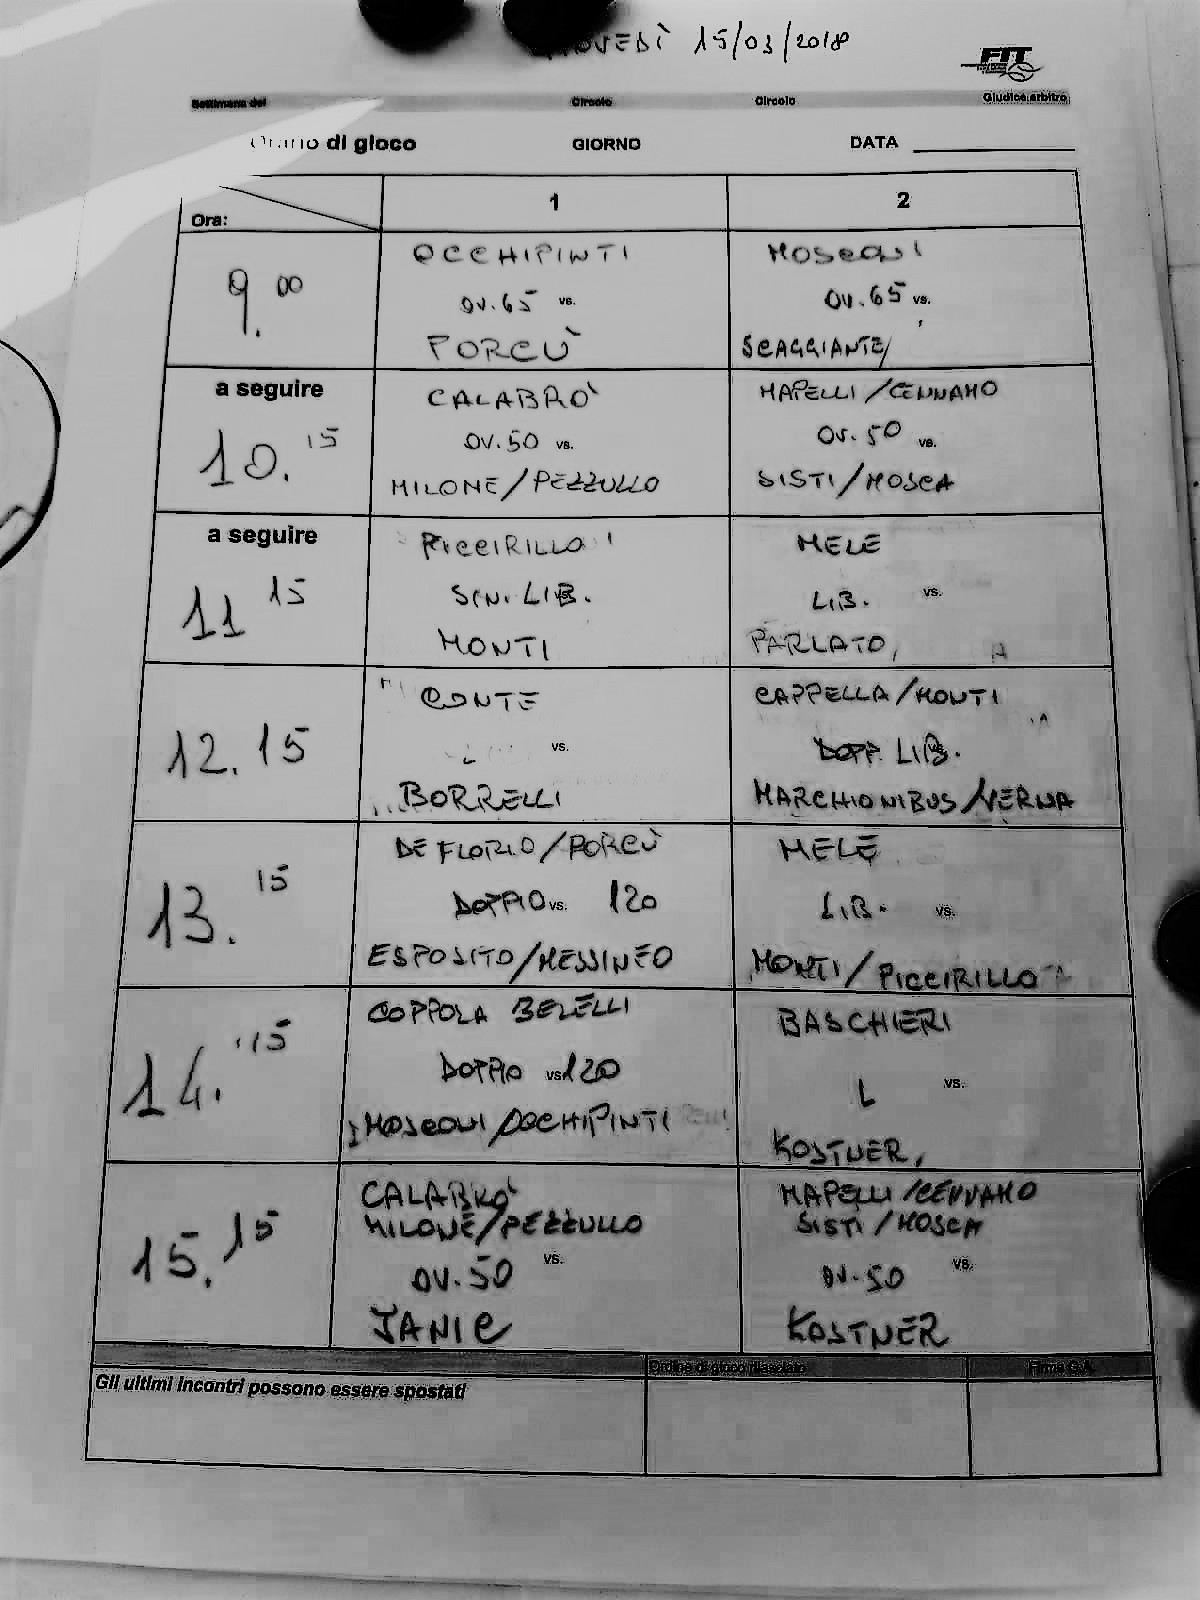 15/03/2018
FIT
Settimana del Circolo Circolo Giudice arbitro
Orario di gioco GIORNO DATA
Ora: 1 2
9.00
OCCHIPINTI
OV.65 vs.
PORCÙ
MOSCONI
OV.65 vs.
SCAGGIANTE
a seguire
10.15
CALABRO'
OV.50 vs.
MILONE/PEZZULLO
MAPELLI/CENNAMO
OV.50 vs.
SISTI/MOSCA
a seguire
11 15
PICCIRILLO
SIN. LIB.
MONTI
MELE
LIB. vs.
PARLATO,
12.15
CONTE
vs.
BORRELLI
CAPPELLA/MONTI
DOPP. LIB.
MARCHIONIBUS/VERNA
13.15
DE FLORIO/PORCÙ
DOPPIO vs. 120
ESPOSITO/MESSINEO
MELE
LIB. vs.
MONTI/PICCIRILLO
14.15
COPPOLA BELELLI
DOPPIO vs. 120
MOSCONI/OCCHIPINTI
BASCHIERI
L vs.
KOSTNER,
15.15
CALABRO'
MILONE/PEZZULLO
vs.
OV.50
JANIC
MAPELLI/CENNAMO
SISTI/MOSCA
vs.
OV.50
KOSTNER
Ordine di gioco rilasciato Firma G.A.
Gli ultimi incontri possono essere spostati